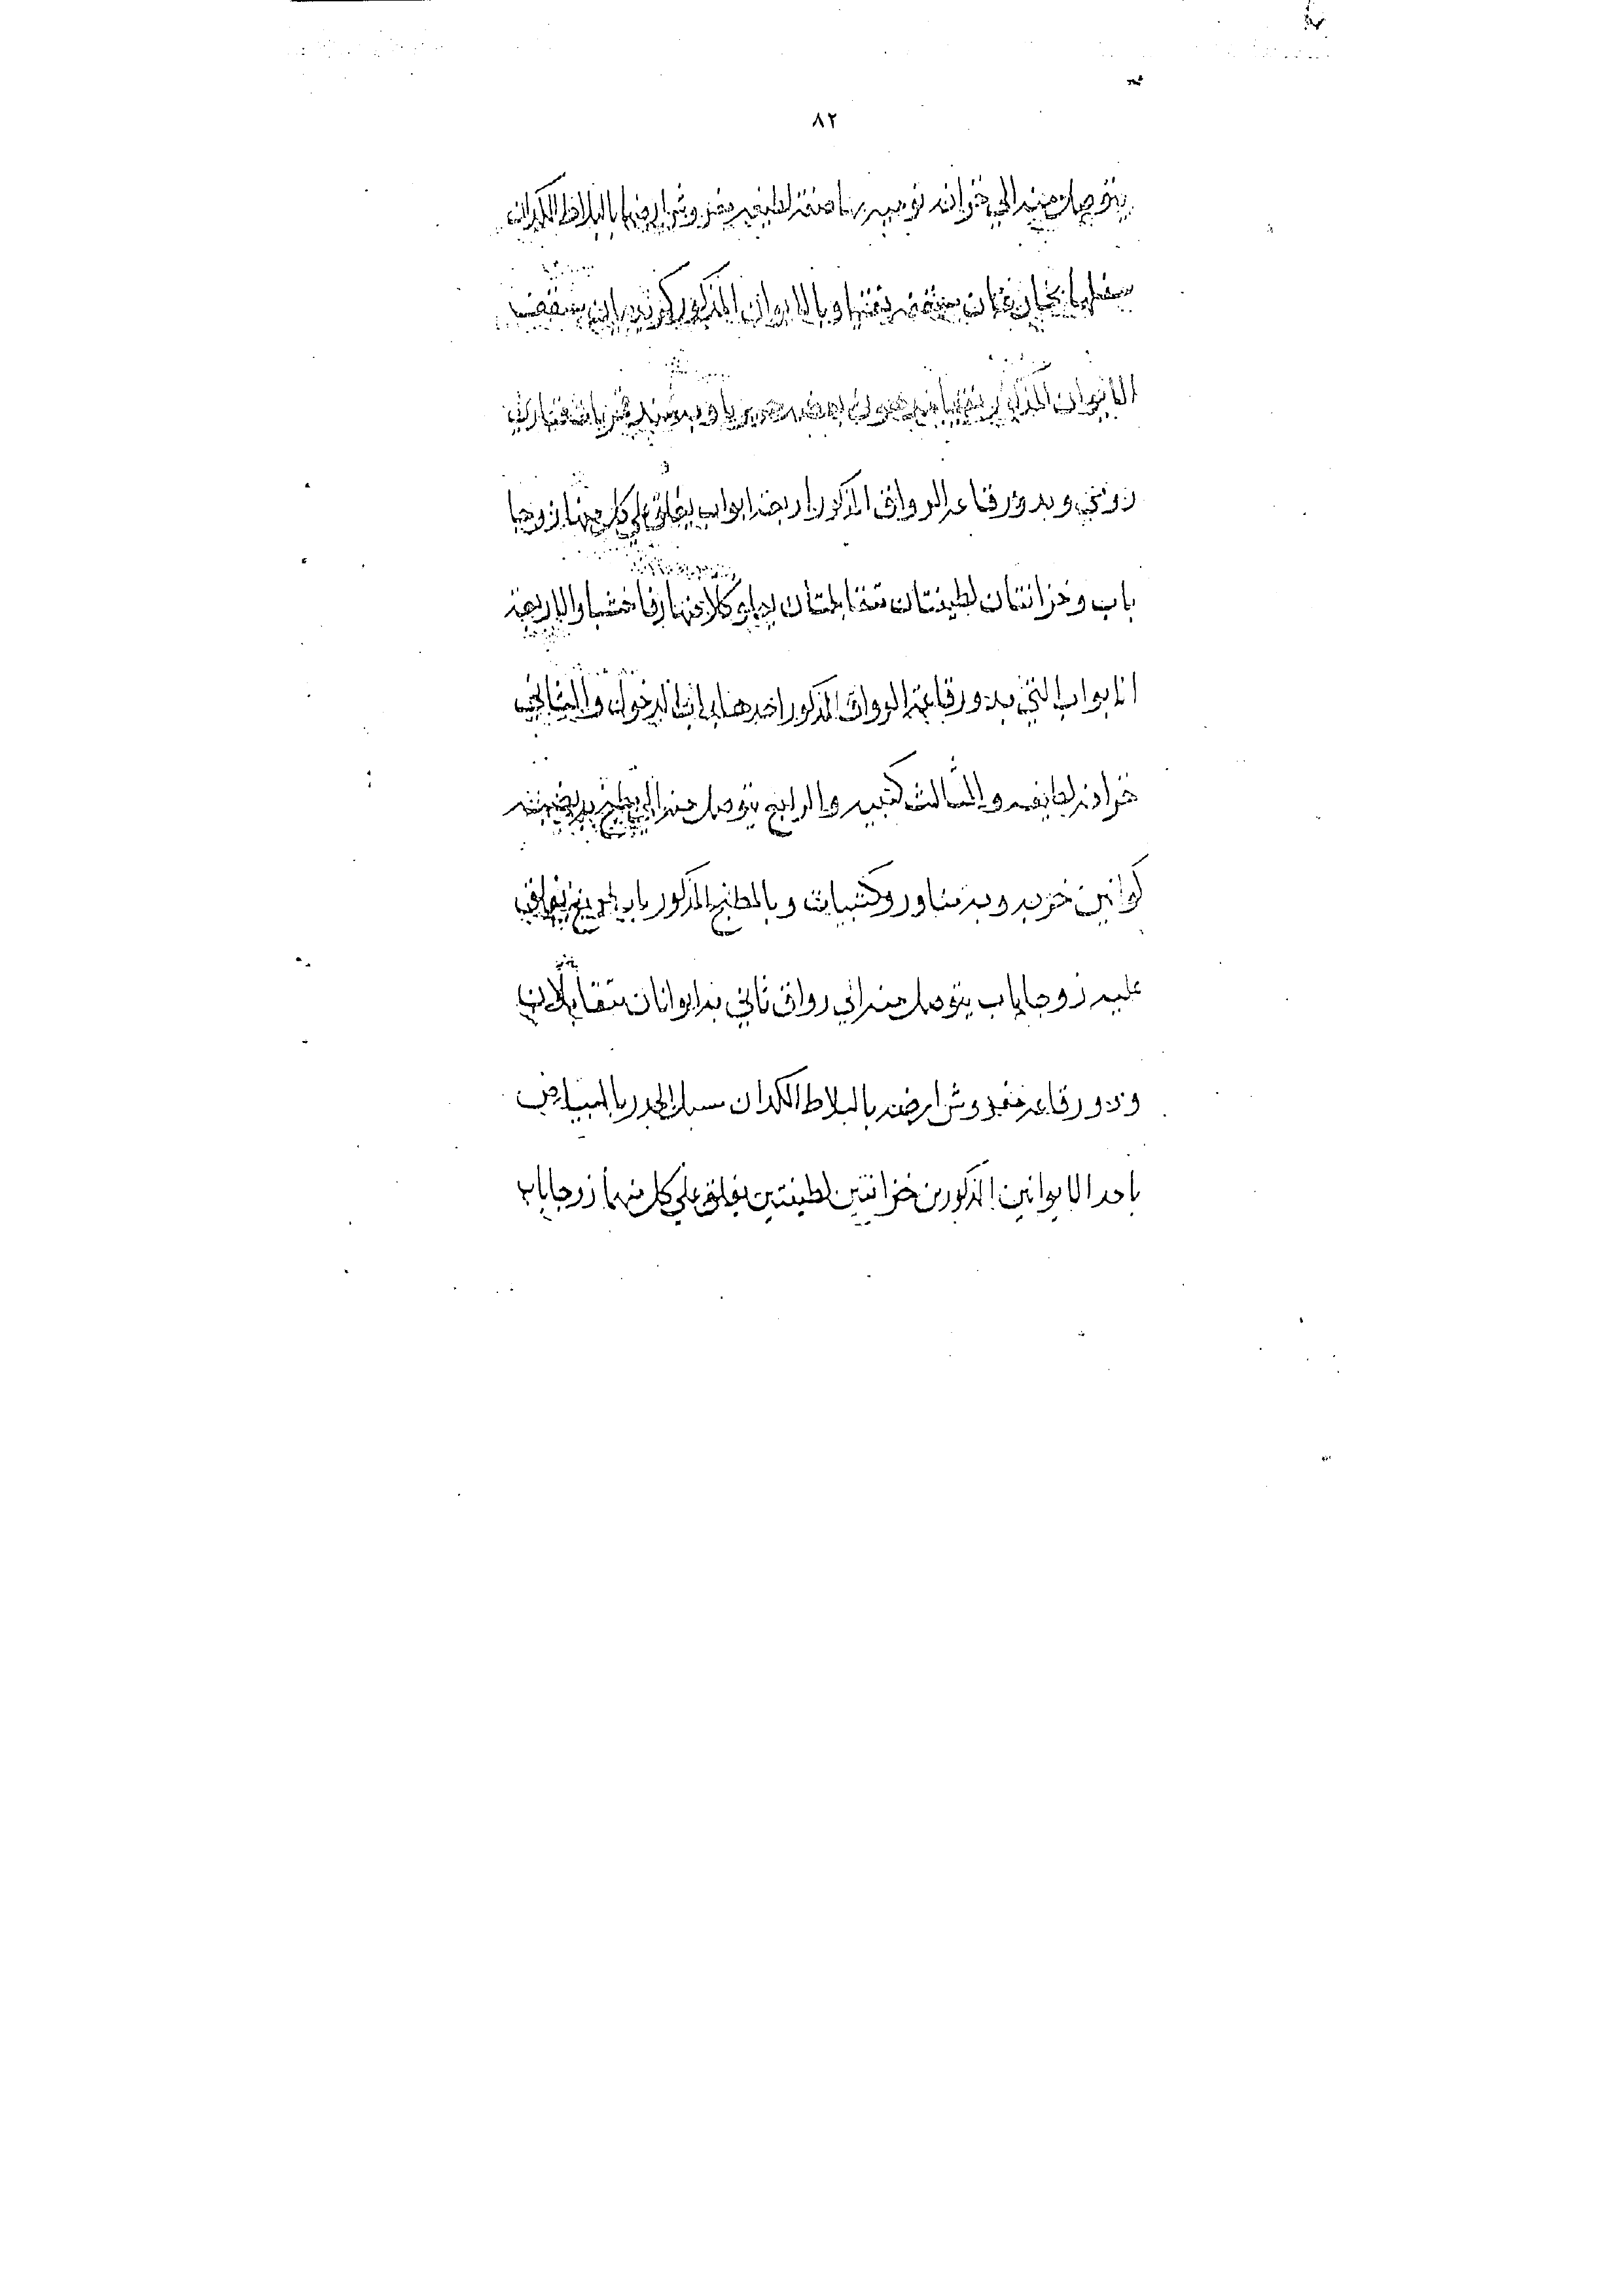 ٨٢
يتوصل منه الي خزانه نوميه بها صفة لطيفه مفروش ارضها بالبلاط الكدان
سفلها بخاريتان مسقفه نقيا وبالايوان المذكور كريديان سقف
الايوان المذكور نقيا مدهون حريريا وبه قمريات
رومي وبدورقاعه الرواق المذكور اربعة ابواب يغلق علي كل منها زوجا
باب وخزانتان لطيفتان متقابلتان يعلو كلا منها رفا خشبا والاربعة
ابواب التي بدورقاعة الرواق المذكور احدها باب الدخول والثاني
خزانه لطيفه والثالث كتبيه والرابع يتوصل منه الي مطبخ به نصبة
كوانين خربه وبه مناور وكتبيات وبالمطبخ المذكور باب مربع يغلق
عليه زوجا باب يتوصل منه الي رواق ثاني به ايوانان متقابلان
ودورقاعه مفروش ارضه بالبلاط الكدان مسبل الجدر بالبياض
باحد الايوانين المذكورين خزانتين لطيفتين يغلق علي كل منهما زوجا باب